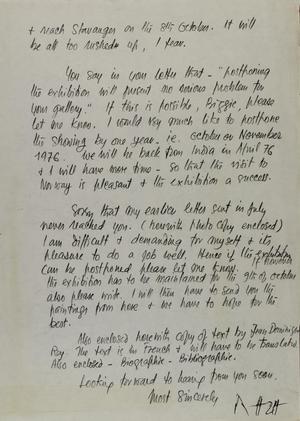 & reach Stavanger on the 8th October. It will
be all too rushed up, I fear.
You say in your letter that - "postponing
the exhibition will present no serious problem for
your gallery." If this is possible, Biggie, please
let me know. I would very much like to postpone
the showing by one year - i.e. October or November
1976. We will be back from India in April 76
& I will have more time - so that the visit to
Norway is pleasant & the exhibition a success.
Sorry that my earlier letter sent in July
never reached you. (herewith photo copy enclosed)
I am difficult & demanding for myself & its
pleasure to do a job well. Hence if the exhibition
can be postponed please let me know. If however
the exhibition has to be maintained for the 9th of October
also please write. I will then have to send you the
paintings from here & we have to hope for the
best.
Also enclosed herewith copy of text by Jean Dominique
Rey. The text is in French & will have to be translated.
Also enclosed - Biographie - Bibliographie.
Looking forward to hearing from you soon.
Most Sincerely
RAZA